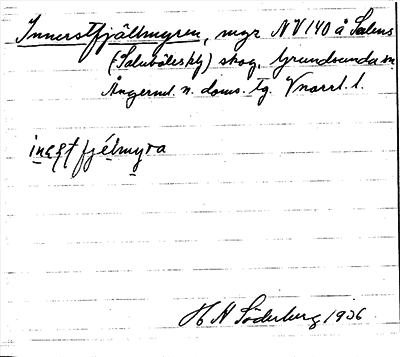 Innerstfjällmyren, myr NV 140 å Salens
(Salubölesby) skog, Grundsunda sn
Ångerml. n. doms. tg. Vnorrl. l.
inɐʂt fjélmyra
H H Söderberg 1936